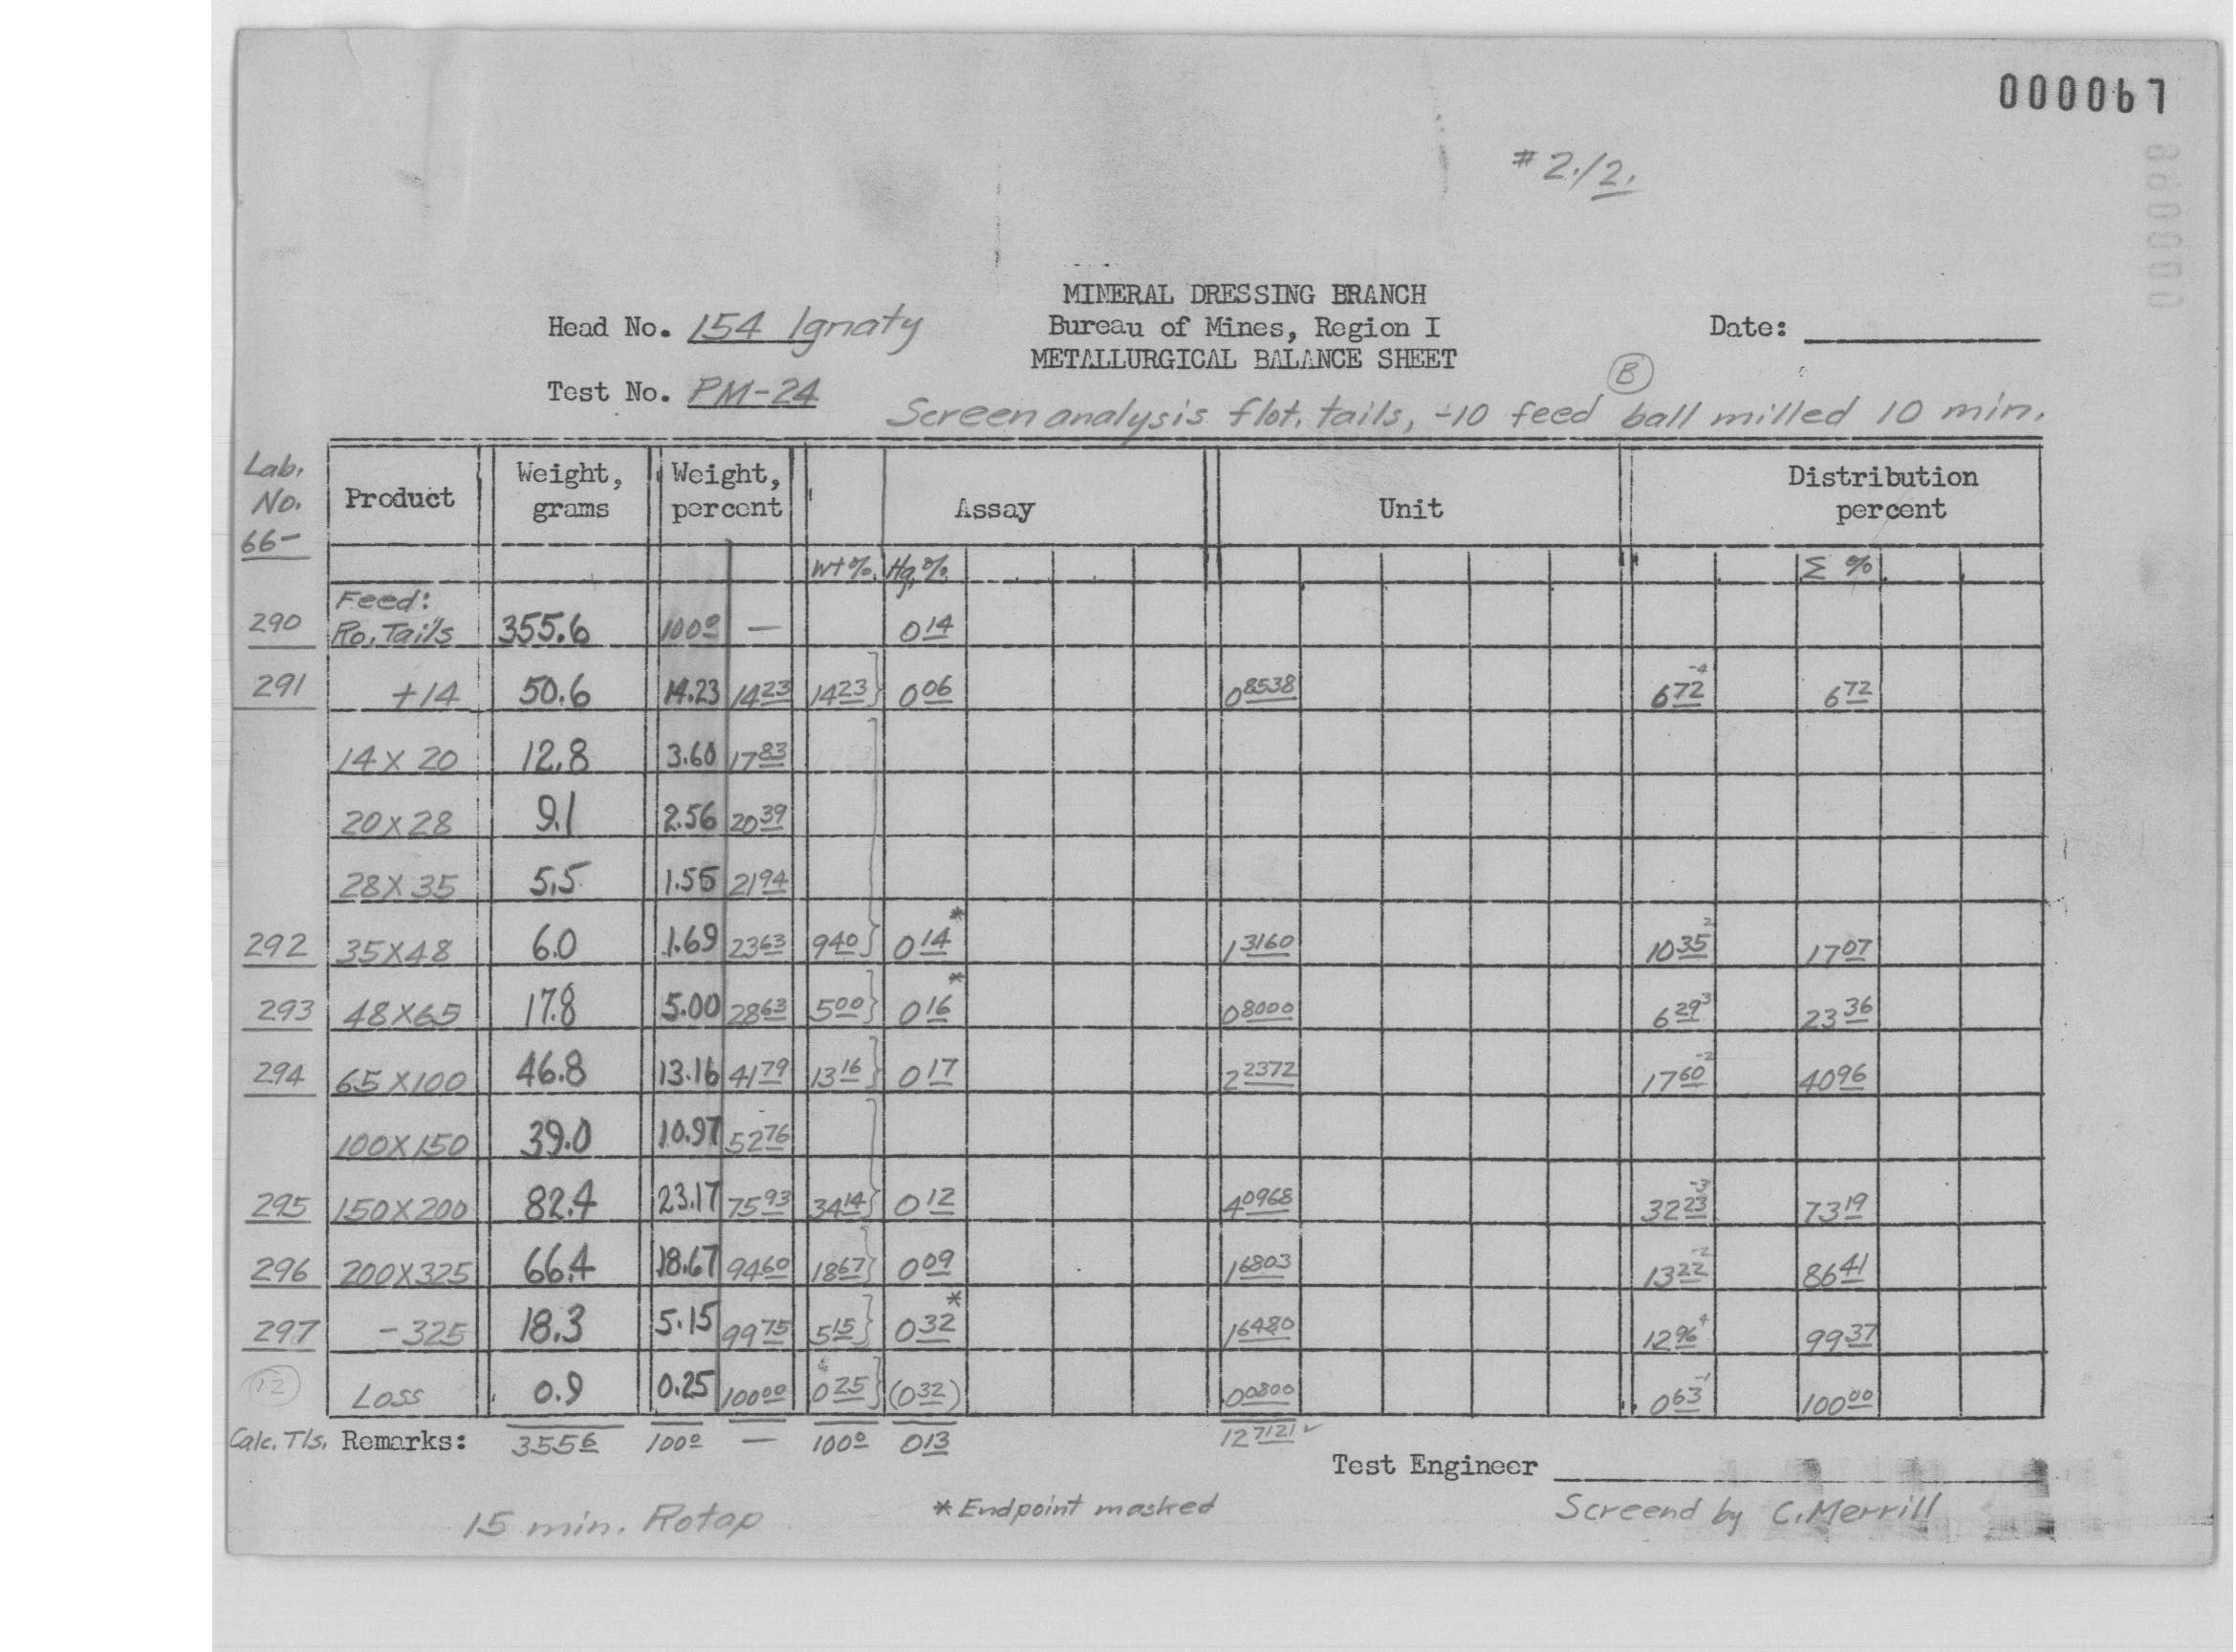 000067
# 2./2.
MINERAL DRESSING BRANCH
Head No. 154 Ignaty Bureau of Mines, Region I Date:
METALLURGICAL BALANCE SHEET
Test No. PM-24 B
Screen analysis flot. tails, -10 feed ball milled 10 min.
Lab. No. 66- Product Weight, grams Weight, percent Assay Unit Distribution percent
Wt %. Hg% Σ %
Feed:
290 Ro. Tails 355.6 100 0 — 0 14
291 +14 50.6 14.23 14 23 14 23 0 06 0 8538 6 72 -4 6 72
14 X 20 12.8 3.60 17 83
20 X 28 9.1 2.56 20 39
28 X 35 5.5 1.55 21 94
292 35X48 6.0 1.69 23 63 9 40 0 14 * 1 3160 10 35 2 17 07
293 48X65 17.8 5.00 28 63 5 00 0 16 * 0 8000 6 29 3 23 36
294 65X100 46.8 13.16 41 79 13 16 0 17 2 2372 17 60 -2 40 96
100X150 39.0 10.97 52 76
295 150X200 82.4 23.17 75 93 34 14 0 12 4 0968 32 23 -3 73 19
296 200X325 66.4 18.67 94 60 18 67 0 09 1 6803 13 22 -2 86 41
297 -325 18.3 5.15 99 75 5 15 0 32 * 1 6480 12 96 4 99 37
12 Loss 0.9 0.25 100 00 0 25 (0 32) 0 0800 0 63 -1 100 00
Calc. Tls. Remarks: 355 6 100 0 — 100 0 0 13 12 7121 ✓
Test Engineer
15 min. Rotap * Endpoint masked Screend by C. Merrill